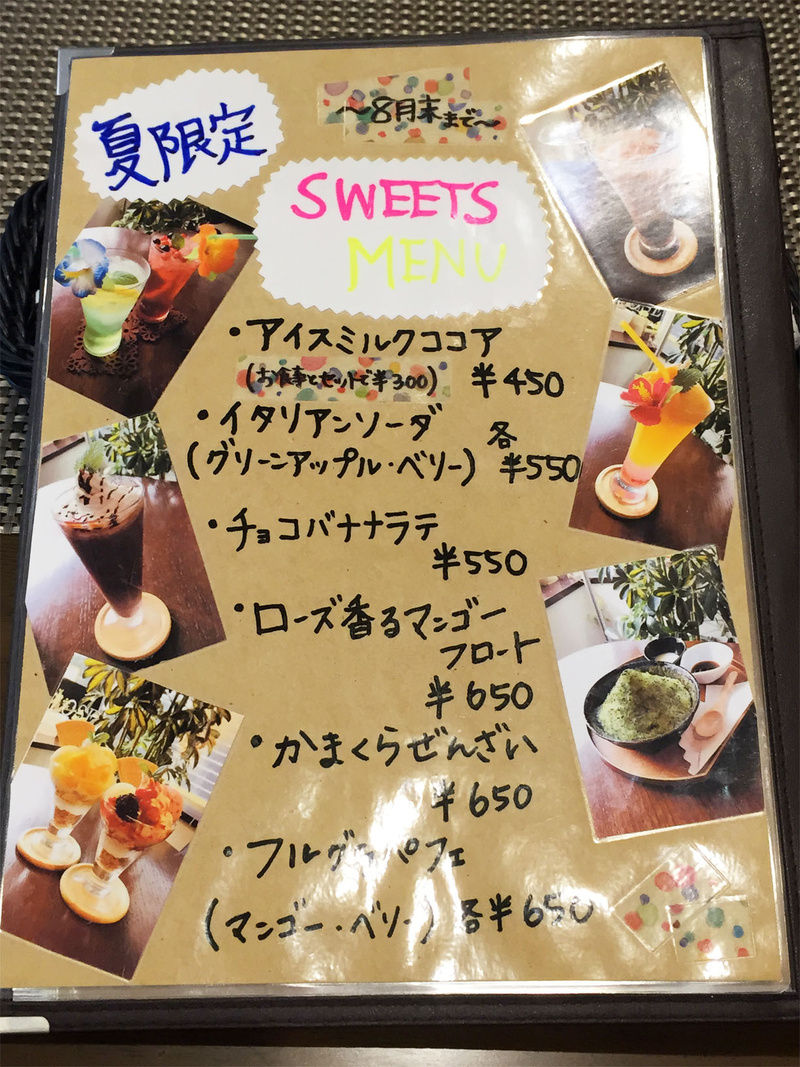 夏限定
～8月末まで～
SWEETS
MENU
・アイスミルクココア
(お食事とセットで¥300)
¥450
・イタリアンソーダ
(グリーンアップル・ベリー)
各
¥550
・チョコバナナラテ
¥550
・ローズ香るマンゴー
フロート
¥650
・かまくらぜんざい
¥650
・フルグラパフェ
(マンゴー・ベリー) 各¥650